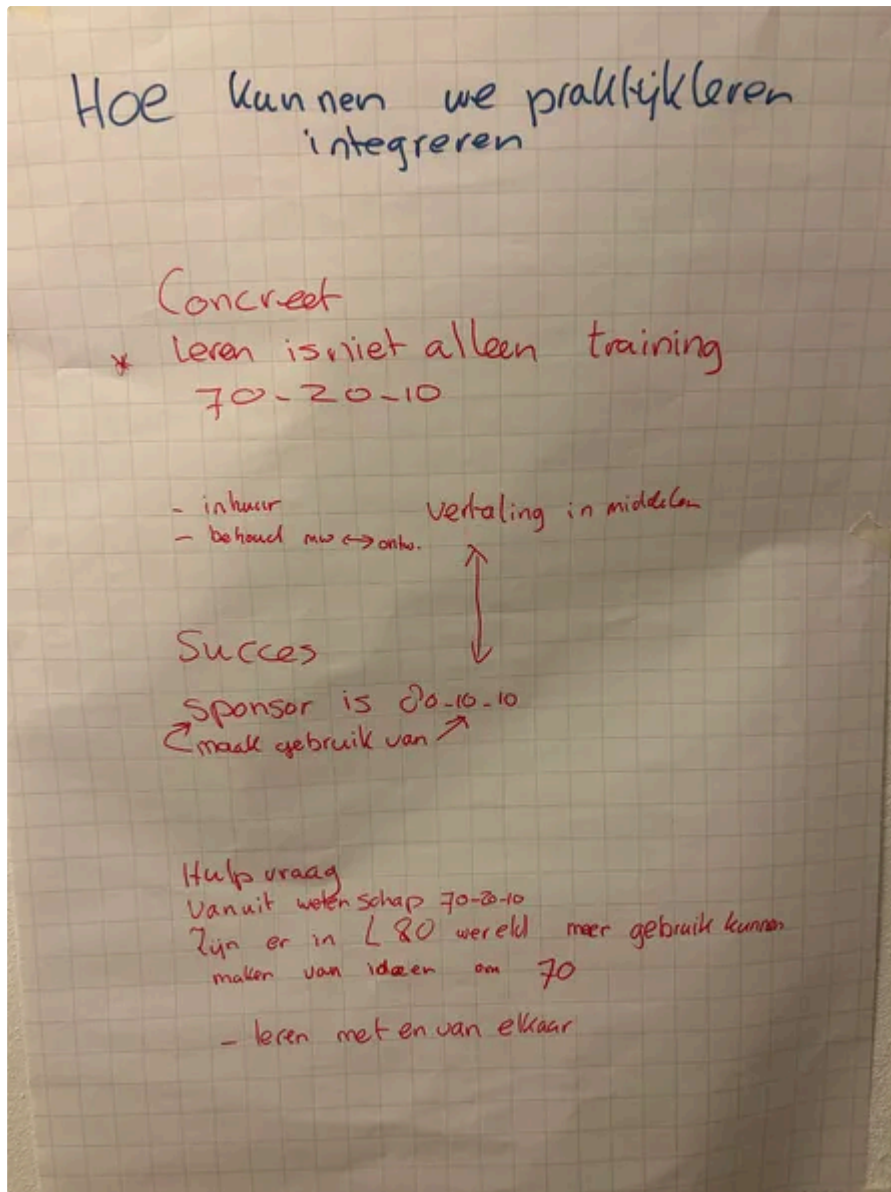 Hoe kunnen we praktijkleren
integreren
Concreet
* leren is niet alleen training
70-20-10
- inhuur
- behoud mw ↔ ontw.
vertaling in middelen
Succes
Sponsor is 80-10-10
maak gebruik van
Hulpvraag
Vanuit wetenschap 70-20-10
Zijn er in L&O wereld meer gebruik kunnen
maken van ideeen om 70
- leren met en van elkaar